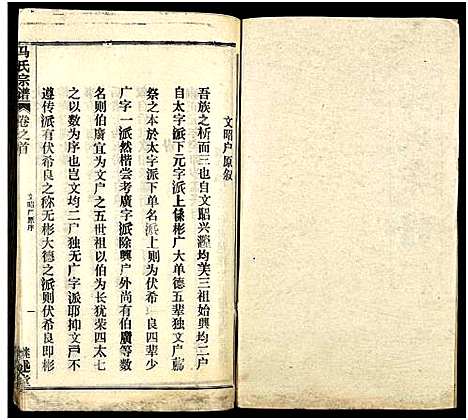 文昭户原叙
吾族之析而三也自文昭兴灏均芙三祖始興均二户
自太字派下元字派上係彬广大单德五辈独文户薦
祭之本於太字派下单名派上则为伏希良四辈少
广字一派然楷尝考廣字派除興户外尚有伯廣等数
名则伯廣宜为文户之五世祖以伯为长犹荣四太七
之以数为序也岂文均二户独无广字派耶抑文户不
遵传派有伏希良之称无彬大德之派则伏希良即彬
马氏宗谱
卷之首
文昭户原序
一